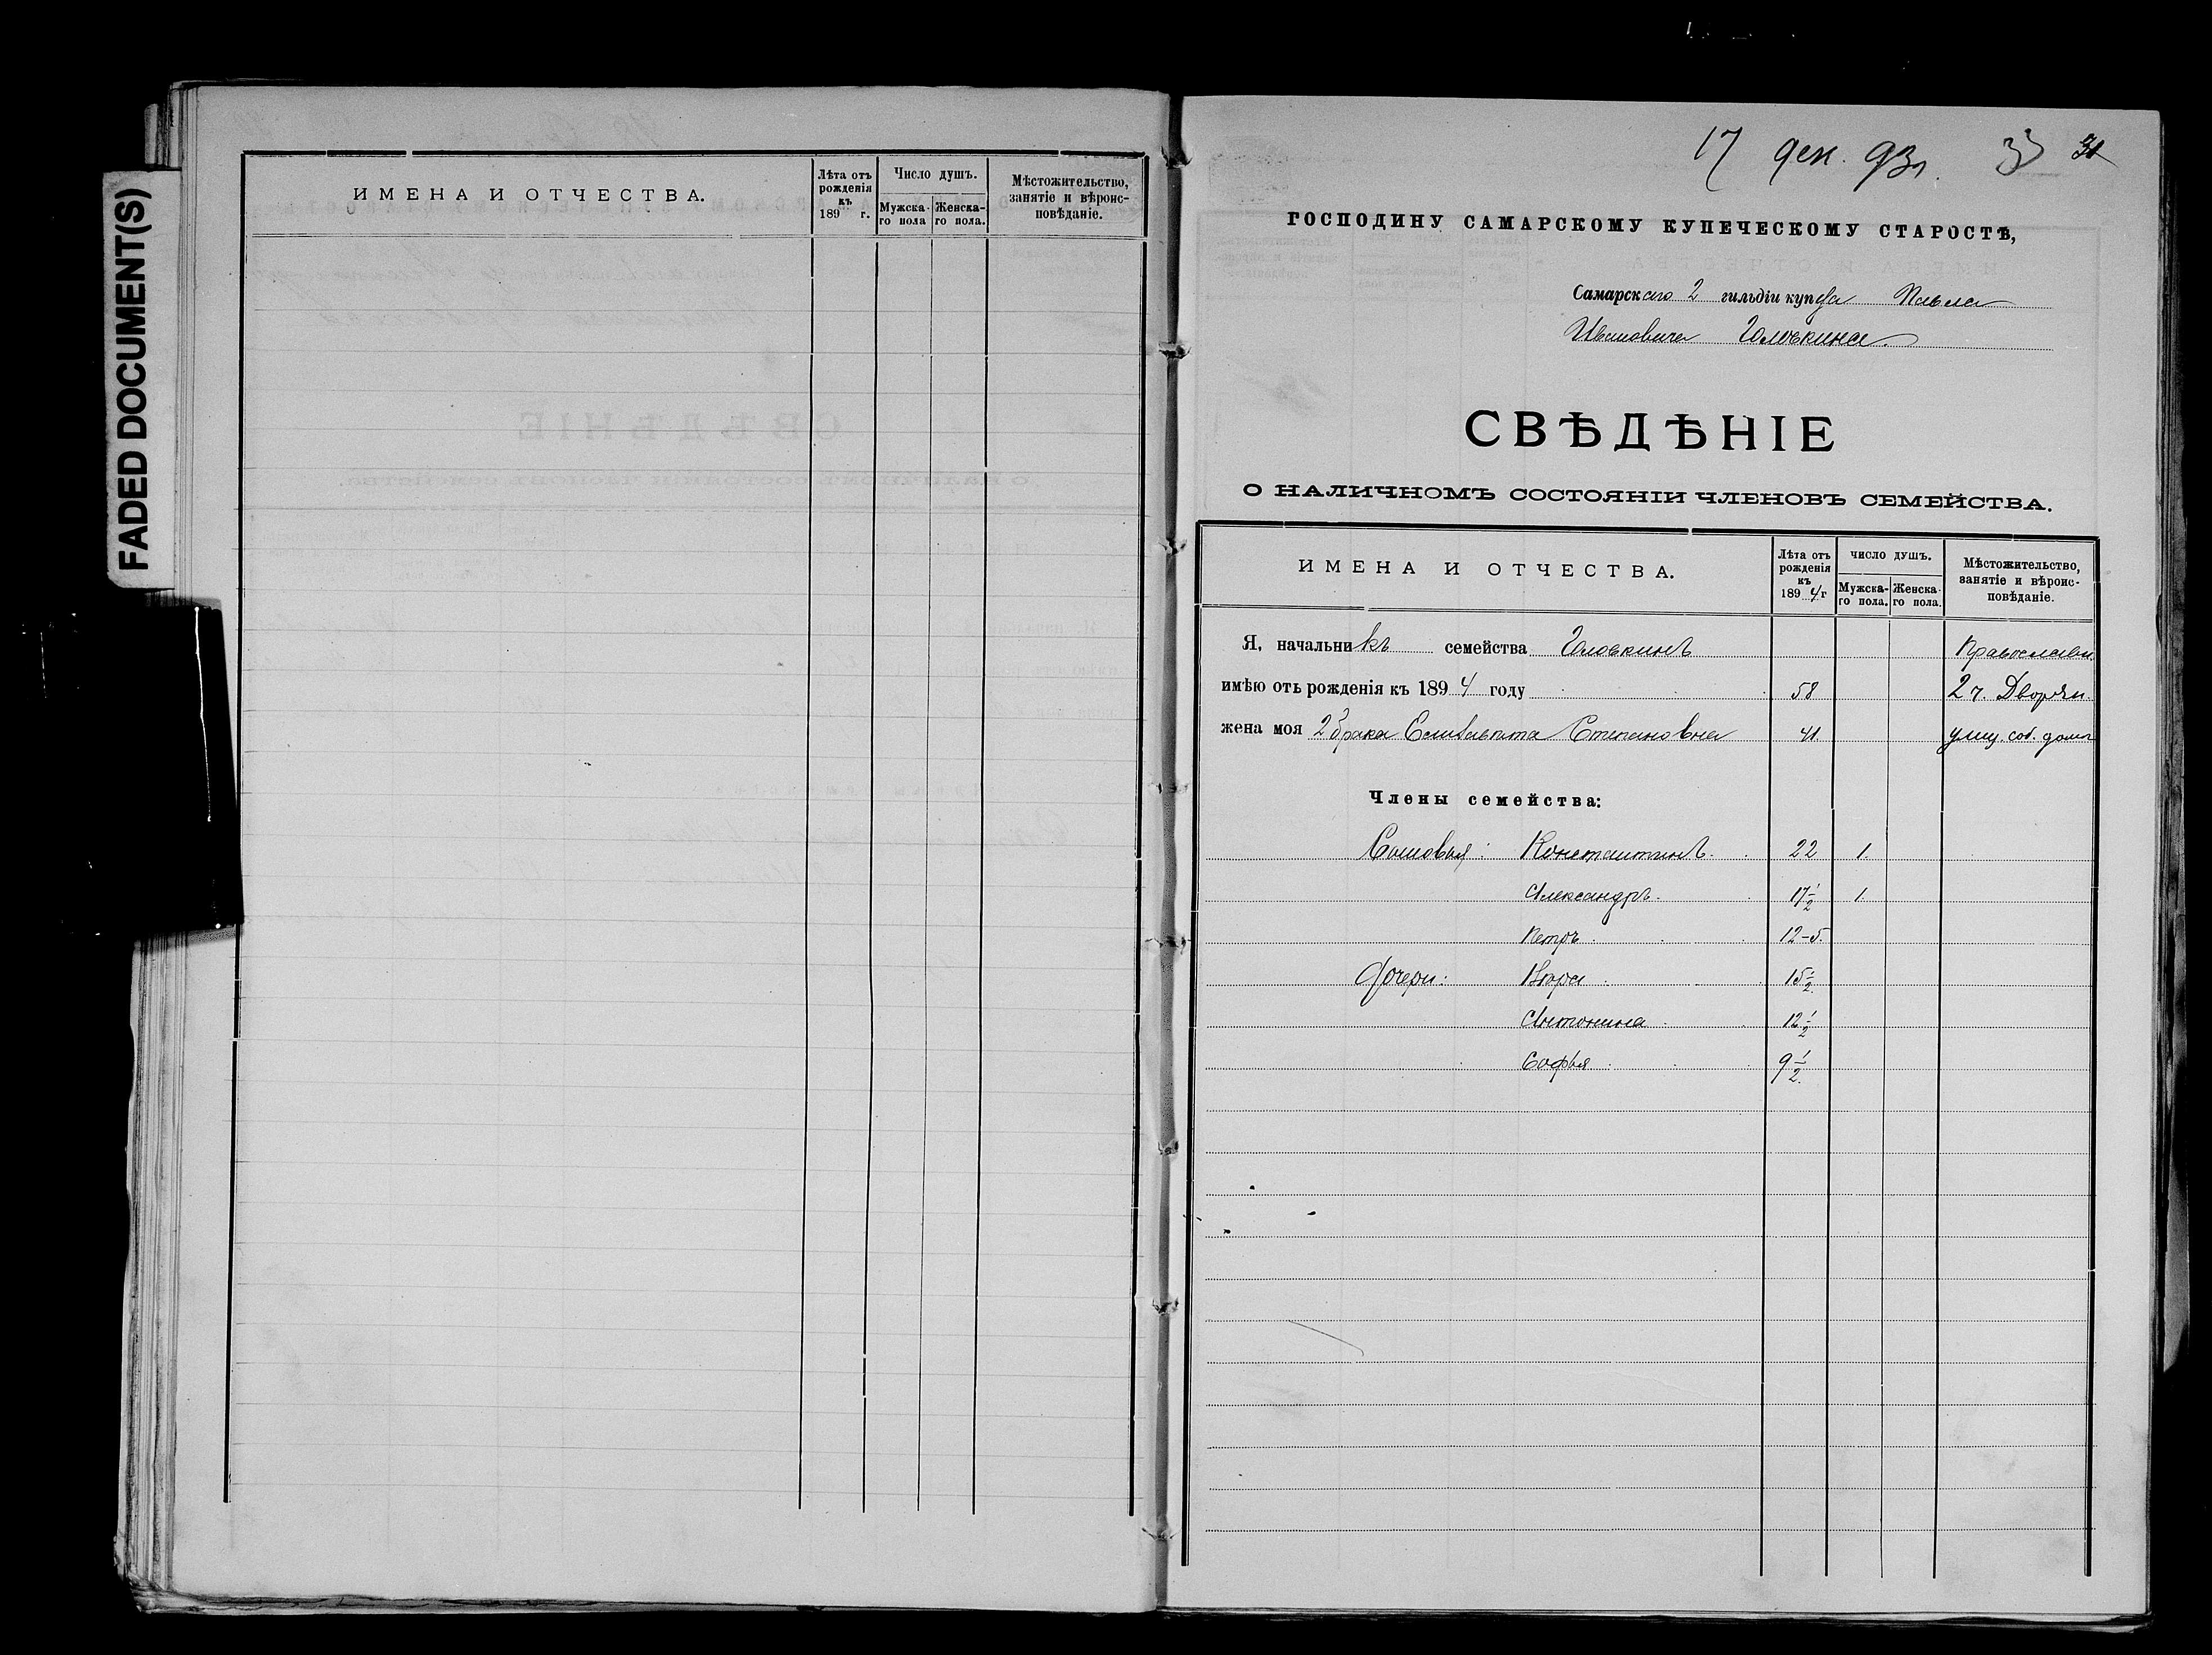 FADED DOCUMENT(S)
ИМЕНА И ОТЧЕСТВА.
Лѣта отъ рожденія къ 189 г.
Число душъ.
Мужска-го пола
Женска-го пола.
Мѣстожительство, занятіе и вѣроис-повѣданіе.
17 дек. 93 г. 33 31
ГОСПОДИНУ САМАРСКОМУ КУПЕЧЕСКОМУ СТАРОСТѢ,
Самарскаго 2 гильдіи купца Павла
Ивановича Головкина.
СВѢДѢНІЕ
О НАЛИЧНОМЪ СОСТОЯНІИ ЧЛЕНОВЪ СЕМЕЙСТВА.
ИМЕНА И ОТЧЕСТВА.
Лѣта отъ рожденія къ 1894 г
ЧИСЛО ДУШЪ.
Мужска-го пола.
Женска-го пола.
Мѣстожительство, занятіе и вѣроис-повѣданіе.
Я, начальникъ семейства Головкинъ Православн.
имѣю отъ рожденія къ 1894 году 58 2 ч. Дворян.
жена моя 2 брака Елизавета Степановна 41 улиц. соб. домъ
Члены семейства:
Сыновья: Константинъ. 22 1.
Александръ. 17 1/2 1.
Петръ. 12-5.
Дочери: Вѣра 15 1/2.
Антонина 12 1/2
Софья 9 1/2.